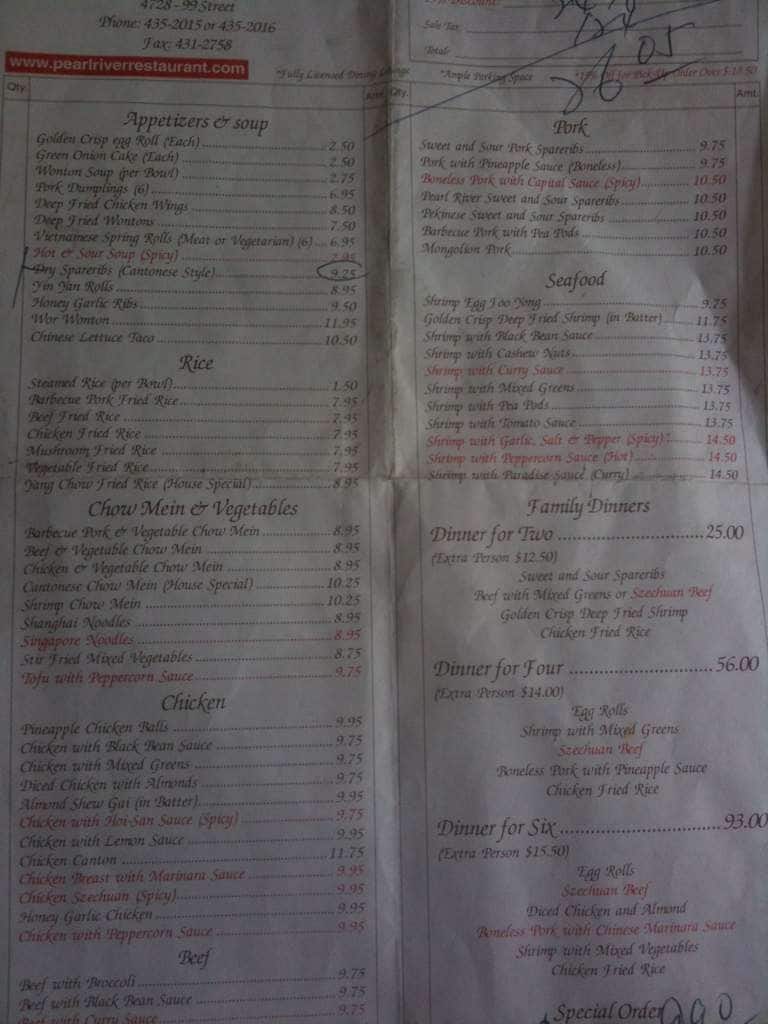 4728 - 99 Street
Phone: 435-2015 or 435-2016
Fax: 431-2758
www.pearlriverrestaurant.com
*Fully Licensed Dining Lounge
Qty.
Amt.
Appetizers & soup
Golden Crisp egg Roll (Each) 2.50
Green Onion Cake (Each) 2.50
Wonton Soup (per Bowl) 2.75
Pork Dumplings (6) 6.95
Deep Fried Chicken Wings 8.50
Deep Fried Wontons 7.50
Vietnamese Spring Rolls (Meat or Vegetarian) (6) 6.95
Hot & Sour Soup (Spicy) 7.95
Dry Spareribs (Cantonese Style) 9.25
Yin Yan Rolls 8.95
Honey Garlic Ribs 9.50
Wor Wonton 11.95
Chinese Lettuce Taco 10.50
Rice
Steamed Rice (per Bowl) 1.50
Barbecue Pork Fried Rice 7.95
Beef Fried Rice 7.95
Chicken Fried Rice 7.95
Mushroom Fried Rice 7.95
Vegetable Fried Rice 7.95
Yang Chow Fried Rice (House Special) 8.95
Chow Mein & Vegetables
Barbecue Pork & Vegetable Chow Mein 8.95
Beef & Vegetable Chow Mein 8.95
Chicken & Vegetable Chow Mein 8.95
Cantonese Chow Mein (House Special) 10.25
Shrimp Chow Mein 10.25
Shanghai Noodles 8.95
Singapore Noodles 8.95
Stir Fried Mixed Vegetables 8.75
Tofu with Peppercorn Sauce 9.75
Chicken
Pineapple Chicken Balls 9.95
Chicken with Black Bean Sauce 9.75
Chicken with Mixed Greens 9.75
Diced Chicken with Almonds 9.75
Almond Shew Gai (in Batter) 9.95
Chicken with Hoi-San Sauce (Spicy) 9.75
Chicken with Lemon Sauce 9.95
Chicken Canton 11.75
Chicken Breast with Marinara Sauce 9.95
Chicken Szechuan (Spicy) 9.95
Honey Garlic Chicken 9.95
Chicken with Peppercorn Sauce 9.95
Beef
Beef with Broccoli 9.75
Beef with Black Bean Sauce 9.75
Beef with Curry Sauce 9.75
15% Discount:
Sales Tax:
Total:
26.05
*Ample Parking Space
*15% Off for Pick-Up Order Over
Qty.
Amt.
Pork
Sweet and Sour Pork Spareribs 9.75
Pork with Pineapple Sauce (Boneless) 9.75
Boneless Pork with Capital Sauce (Spicy) 10.50
Pearl River Sweet and Sour Spareribs 10.50
Pekinese Sweet and Sour Spareribs 10.50
Barbecue Pork with Pea Pods 10.50
Mongolion Pork 10.50
Seafood
Shrimp Egg Foo Yong 9.75
Golden Crisp Deep Fried Shrimp (in Batter) 11.75
Shrimp with Black Bean Sauce 13.75
Shrimp with Cashew Nuts 13.75
Shrimp with Curry Sauce 13.75
Shrimp with Mixed Greens 13.75
Shrimp with Pea Pods 13.75
Shrimp with Tomato Sauce 13.75
Shrimp with Garlic, Salt & Pepper (Spicy) 14.50
Shrimp with Peppercorn Sauce (Hot) 14.50
Shrimp with Paradise Sauce (Curry) 14.50
Family Dinners
Dinner for Two 25.00
(Extra Person $12.50)
Sweet and Sour Spareribs
Beef with Mixed Greens or Szechuan Beef
Golden Crisp Deep Fried Shrimp
Chicken Fried Rice
Dinner for Four 56.00
(Extra Person $14.00)
Egg Rolls
Shrimp with Mixed Greens
Szechuan Beef
Boneless Pork with Pineapple Sauce
Chicken Fried Rice
Dinner for Six 93.00
(Extra Person $15.50)
Egg Rolls
Szechuan Beef
Diced Chicken and Almond
Boneless Pork with Chinese Marinara Sauce
Shrimp with Mixed Vegetables
Chicken Fried Rice
Special Order